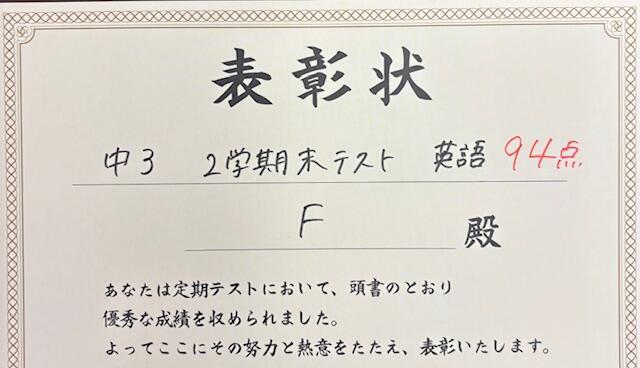 表彰状
中3 2学期末テスト 英語 94点
F 殿
あなたは定期テストにおいて、頭書のとおり
優秀な成績を収められました。
よってここにその努力と熱意をたたえ、表彰いたします。